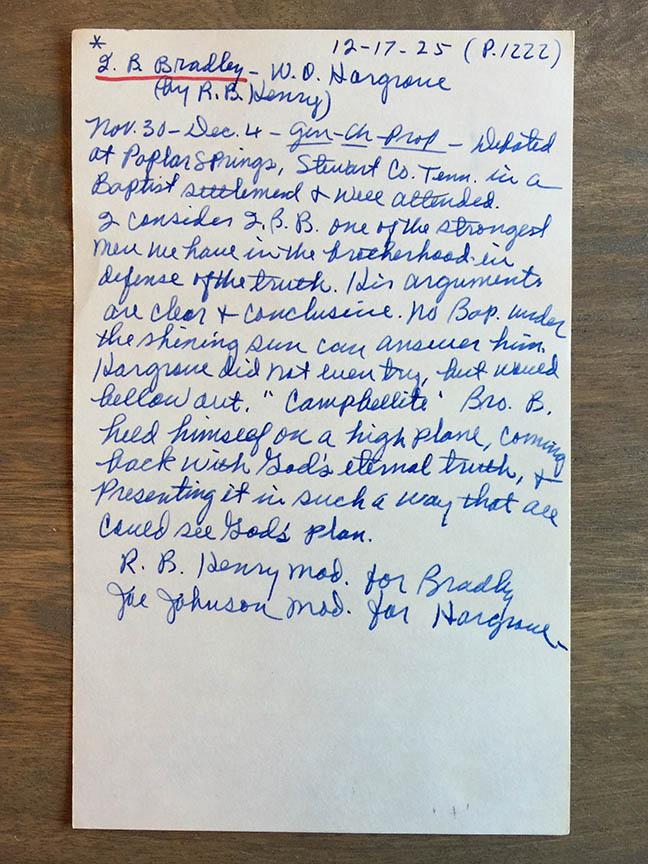 12-17-25 (P.1222)
*
I. B. Bradley - W. O. Hargrove
(by R. B. Henry)
Nov. 30 - Dec. 4 - Gen-Ch-Prop - Debated
at Poplar Springs, Stewart Co. Tenn. in a
Baptist settlement & well attended.
I consider I. B. B. one of the strongest
men we have in the brotherhood in
defense of the truth. His arguments
are clear & conclusive. No Bap. under
the shining sun can answer him.
Hargrove did not even try, but would
bellow out, "Campbellite" Bro. B.
held himself on a high plane, coming
back with God's eternal truth, &
presenting it in such a way that all
could see God's plan.
R. B. Henry Mod. for Bradley
Joe Johnson Mod. for Hargrove-